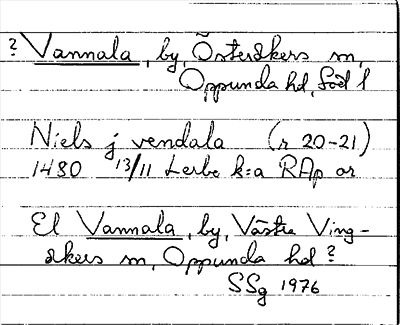 ? Vannala, by, Österåkers sn,
Oppunda hd, Söd l
Niels j vendala (r 20-21)
1480 13/11 Lerbo k:a RAp or
El Vannala, by, Västra Ving-
åkers sn, Oppunda hd?
SSg 1976